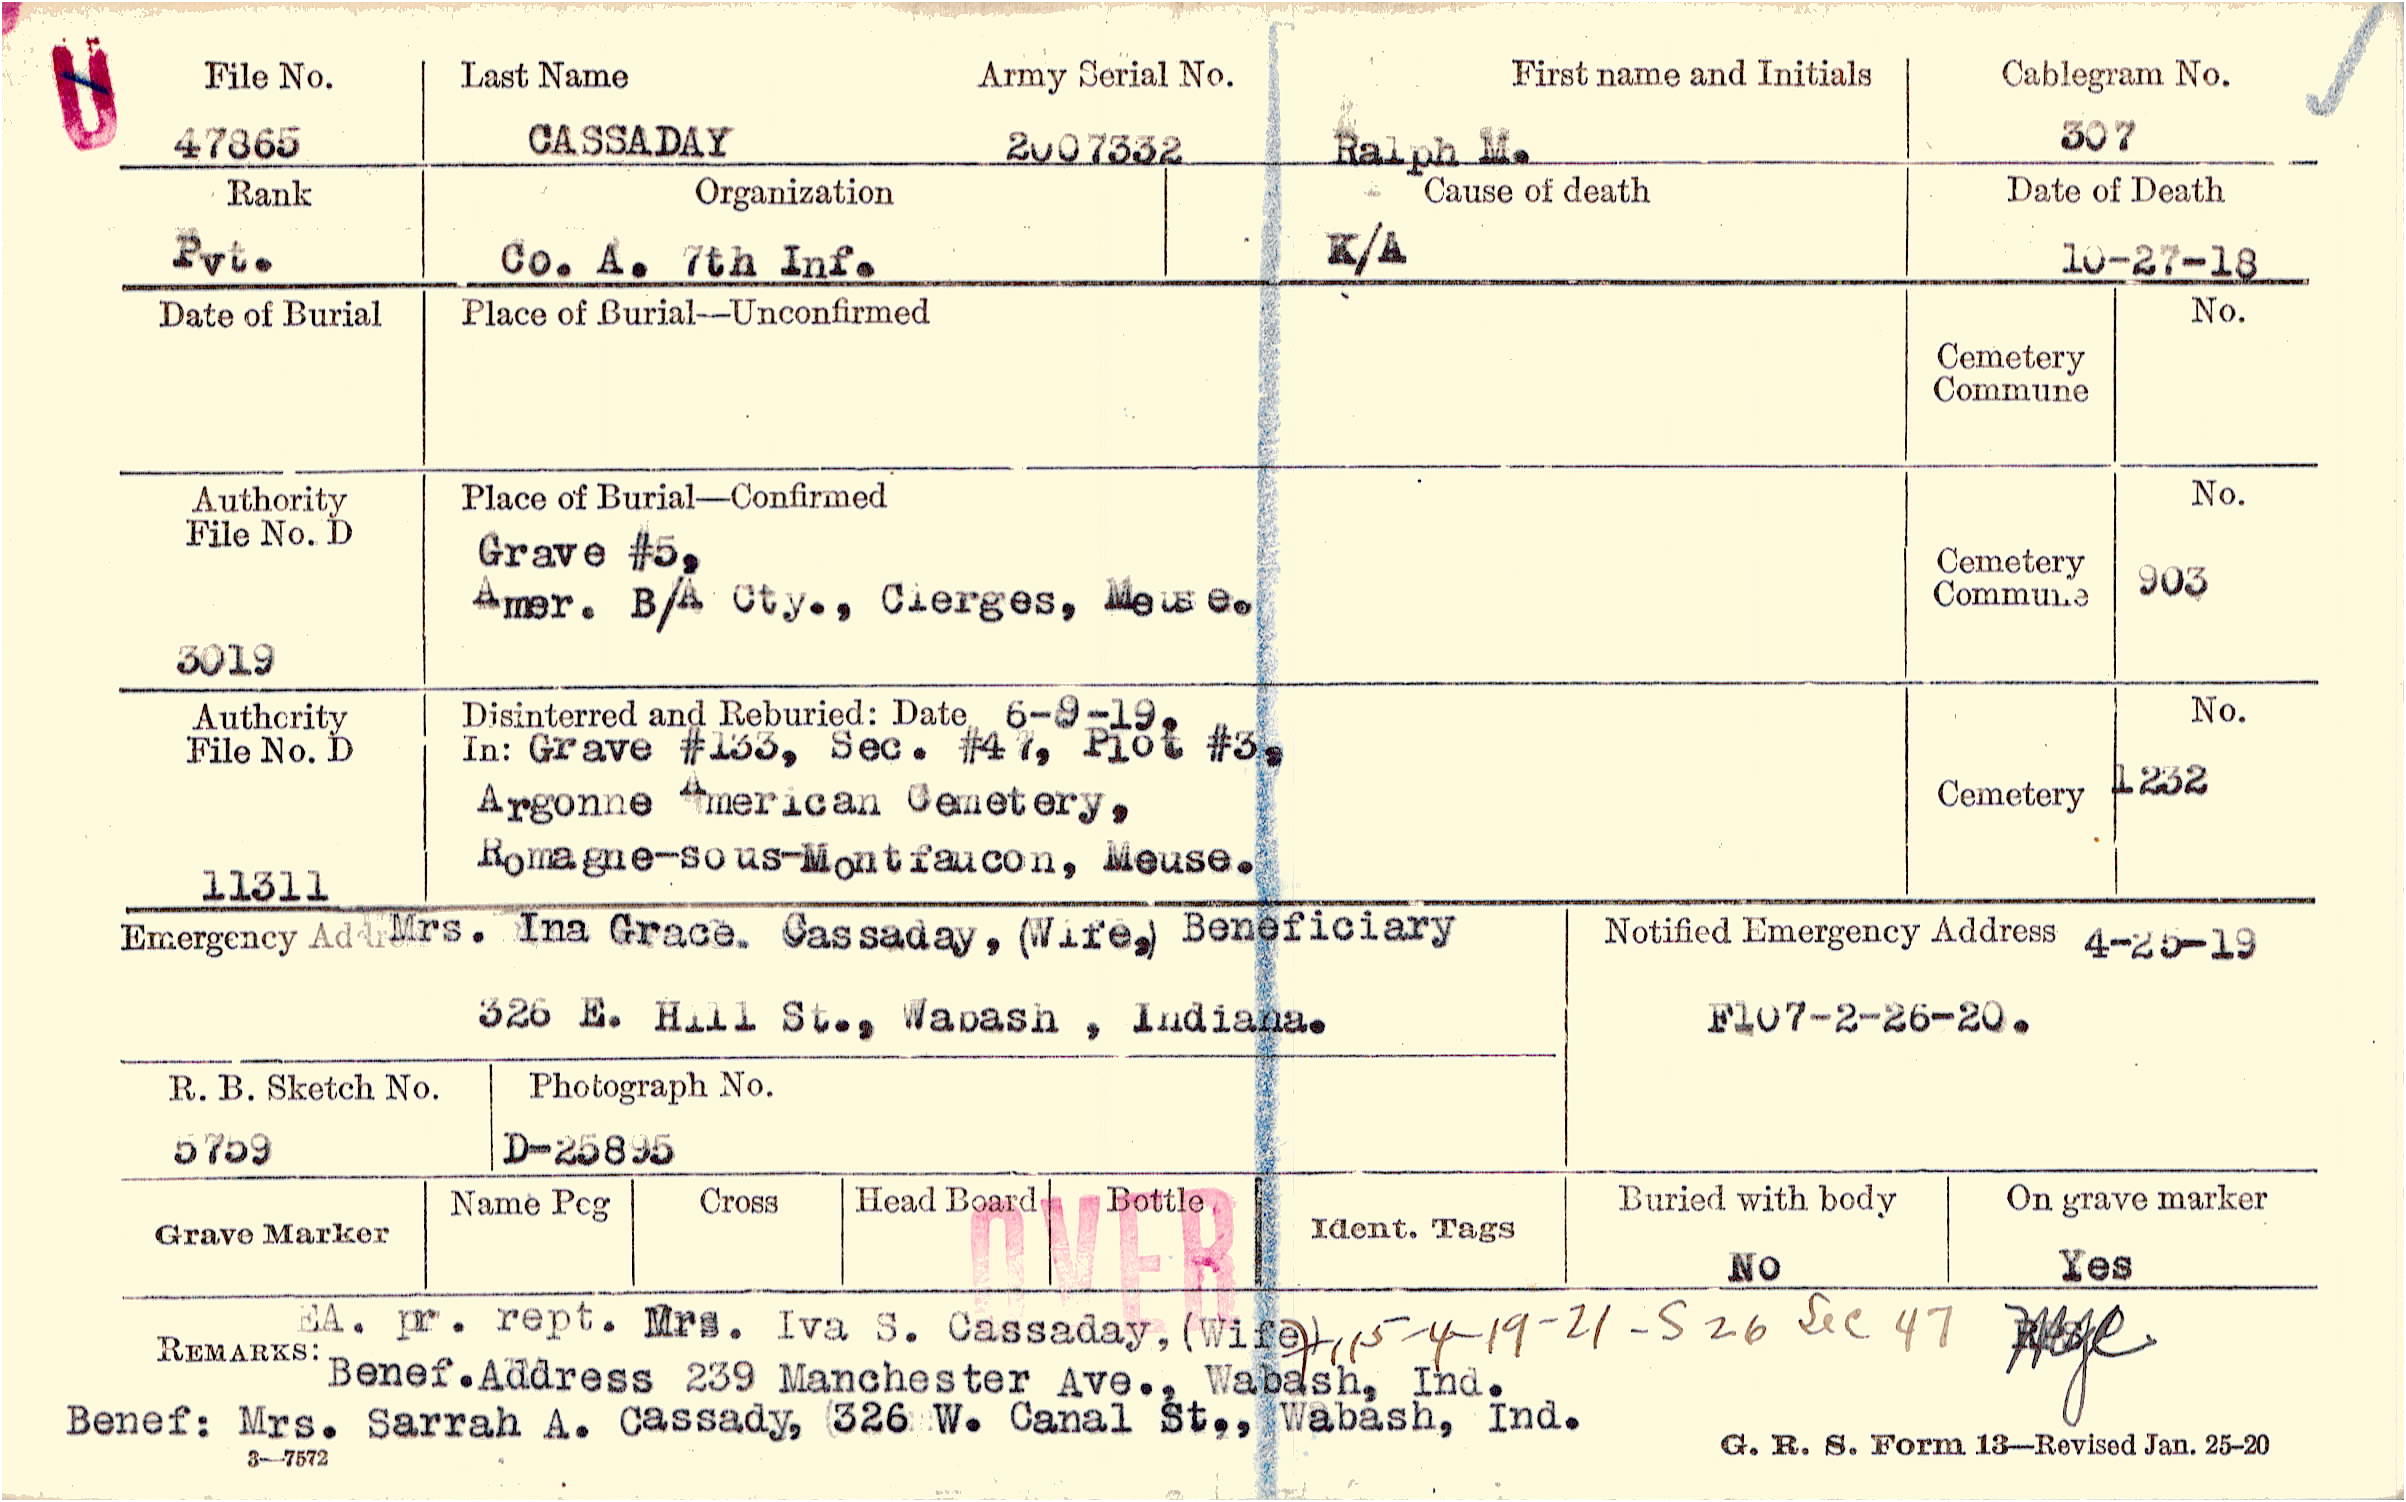 U
File No. Last Name Army Serial No. First name and Initials Cablegram No.
47865 CASSADAY 2007332 Ralph M. 307
Rank Organization Cause of death Date of Death
Pvt. Co. A. 7th Inf. K/A 10-27-18
Date of Burial Place of Burial—Unconfirmed No.
Cemetery
Commune
Authority Place of Burial—Confirmed No.
File No. D
Grave #5,
Cemetery
Amer. B/A Cty., Cierges, Meuse.
Commune 903
3019
Authority Disinterred and Reburied: Date 6-9-19. No.
File No. D In: Grave #133, Sec. #47, Plot #3,
Argonne American Cemetery, Cemetery 1232
Romagne-sous-Montfaucon, Meuse.
11311
Emergency Addr Mrs. Ina Grace. Cassaday, (Wife,) Beneficiary Notified Emergency Address 4-25-19
326 E. Hill St., Wabash , Indiana. F107-2-26-20.
R. B. Sketch No. Photograph No.
5759 D-25895
Grave Marker Name Peg Cross Head Board Bottle Ident. Tags Buried with body On grave marker
OVER
No Yes
EA. pr. rept. Mrs. Iva S. Cassaday, (Wife) 15-4-19-21-S 26 Sec 47
REMARKS:
Benef.Address 239 Manchester Ave., Wabash, Ind.
Benef: Mrs. Sarrah A. Cassady, 326 W. Canal St., Wabash, Ind.
3—7572 G. R. S. Form 13—Revised Jan. 25-20